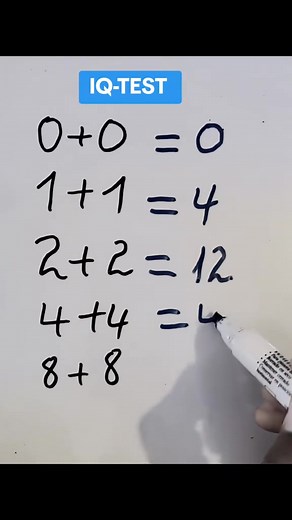 IQ-TEST
0+0 = 0
1+1 = 4
2+2 = 12.
4+4 = 4
8+8